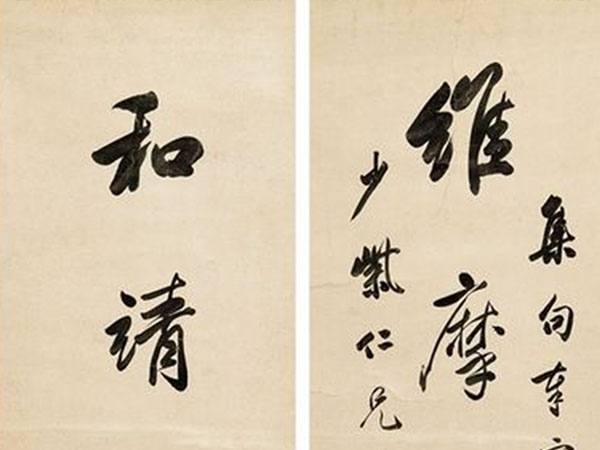 集句奉
維摩
少紫仁兄
和靖